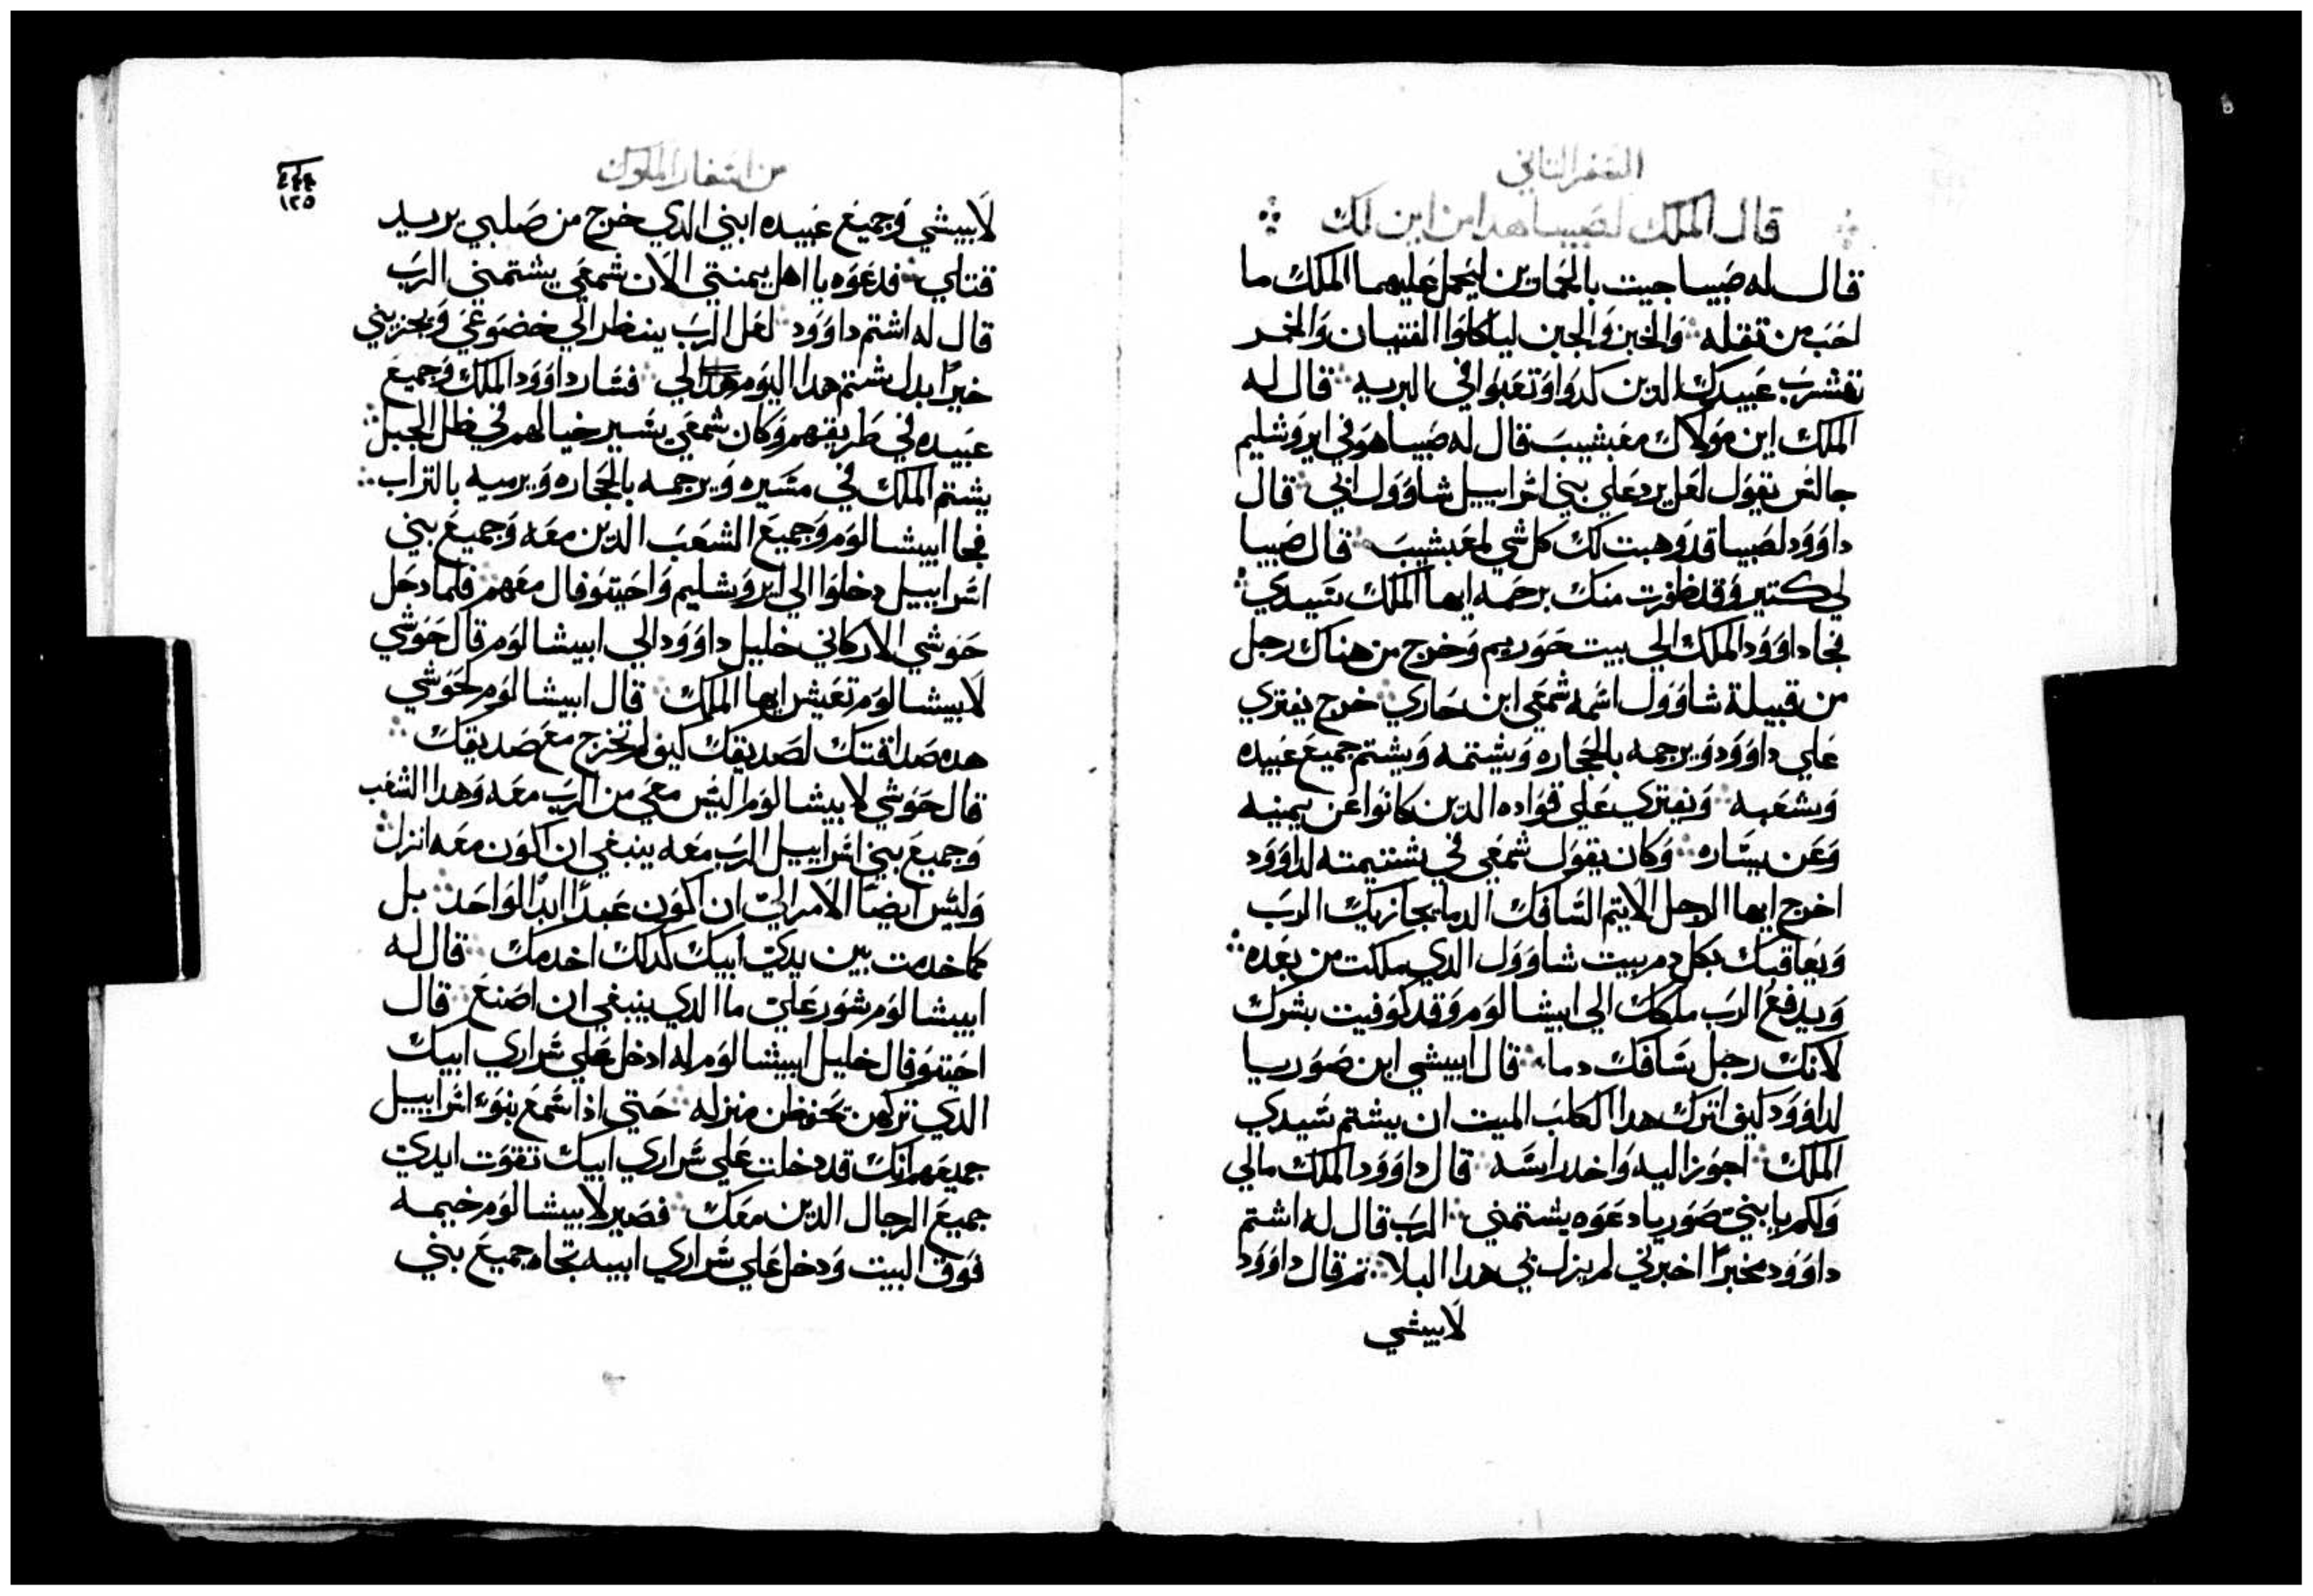 السفر الثاني
قال الملك لصيبا هدا من اين لك
قال له صيبا جيت بالحمارين ليحمل عليهما الملك ما
احب من تقله والخبز والجبن لياكلوا الفتيان والخمر
تشرب عبيدك الدين كدوا وتعبوا في البريه قال له
الملك اين مولاك مفبشيب قال له صيبا هو في ايروشليم
جالس يقول لعل يرد علي بني اسراييل شاوول ابي قال
داوود لصيبا قد وهبت لك كل شي لمفبشيب قال صيبا
لي كتير وقد ظفرت منك برحمه ايها الملك سيدي
فجا داوود الملك الي بيت حوريم وخرج من هناك رجل
من قبيلة شاوول اسمه شمعي ابن حاري خرج يفتري
علي داوود ويرجمه بالحجاره ويشتمه ويشتم جميع عبيده
وشعبه ويفتري علي قواده الدين كانوا عن يمينه
وعن يساره وكان يقول شمعي في شتيمته لداوود
اخرج ايها الرجل الاتيم السافك الدما يجازيك الرب
ويعاقبك بكل دم بيت شاوول الدي ملكت من بعده
ويدفع الرب ملكك الي ابيشالوم وقد كوفيت بشرك
لانك رجل سافك دما قال ابيشي ابن صوريا
لداوود كيف اترك هدا الكلب الميت ان يشتم سيدي
الملك اجوز اليه واخد راسه قال داوود الملك مالي
ولكم يا بني صوريا دعوه يشتمني الرب قال له اشتم
داوود مخبرًا اخبرني لم ينزل بي هدا البلا ثم قال داوود
لابيشي
من اسفار الملوك
١٢٥
لابيشي وجميع عبيده ابني الدي خرج من صلبي يريد
قتلي فدعوه يا اهل يمنتي الان شمعي يشتمني الرب
قال له اشتم داوود لعل الرب ينظر الي خضوعي ويجزيني
خيرًا بدل شتم هدا اليوم لي فسار داوود الملك وجميع
عبيده في طريقهم وكان شمعي يسير حيالهم في ظل الجبل
يشتم الملك في مسيره ويرجمه بالحجاره ويرميه بالتراب
فجا ابيشالوم وجميع الشعب الدين معه وجميع بني
اسراييل دخلوا الي ايروشليم واحيتوفال معهم فلما دخل
حوشي الاركاني خليل داوود الي ابيشالوم قال حوشي
لابيشالوم تعيش ايها الملك قال ابيشالوم لحوشي
هده صداقتك لصديقك كيف لم تخرج مع صديقك
قال حوشي لابيشالوم اليس معي من الرب معه وهدا الشعب
وجميع بني اسراييل الرب معه ينبغي ان اكون معه انزل
وليس ايضًا الامر الي ان اكون عبدًا ابدًا لواحد بل
كما خدمت بين يدي ابيك كدلك اخدمك قال له
ابيشالوم شور علي ما الدي ينبغي ان اصنع قال
احيتوفال خليل ابيشالوم له ادخل علي سراري ابيك
الدي تركهن تحفظن منزله حتي اذا سمع بنوء اسراييل
جميعهم انك قد دخلت علي سراري ابيك تقوت ايدي
جميع الرجال الدين معك فصير لابيشالوم خيمه
فوق البيت ودخل علي سراري ابيه تجاه جميع بني